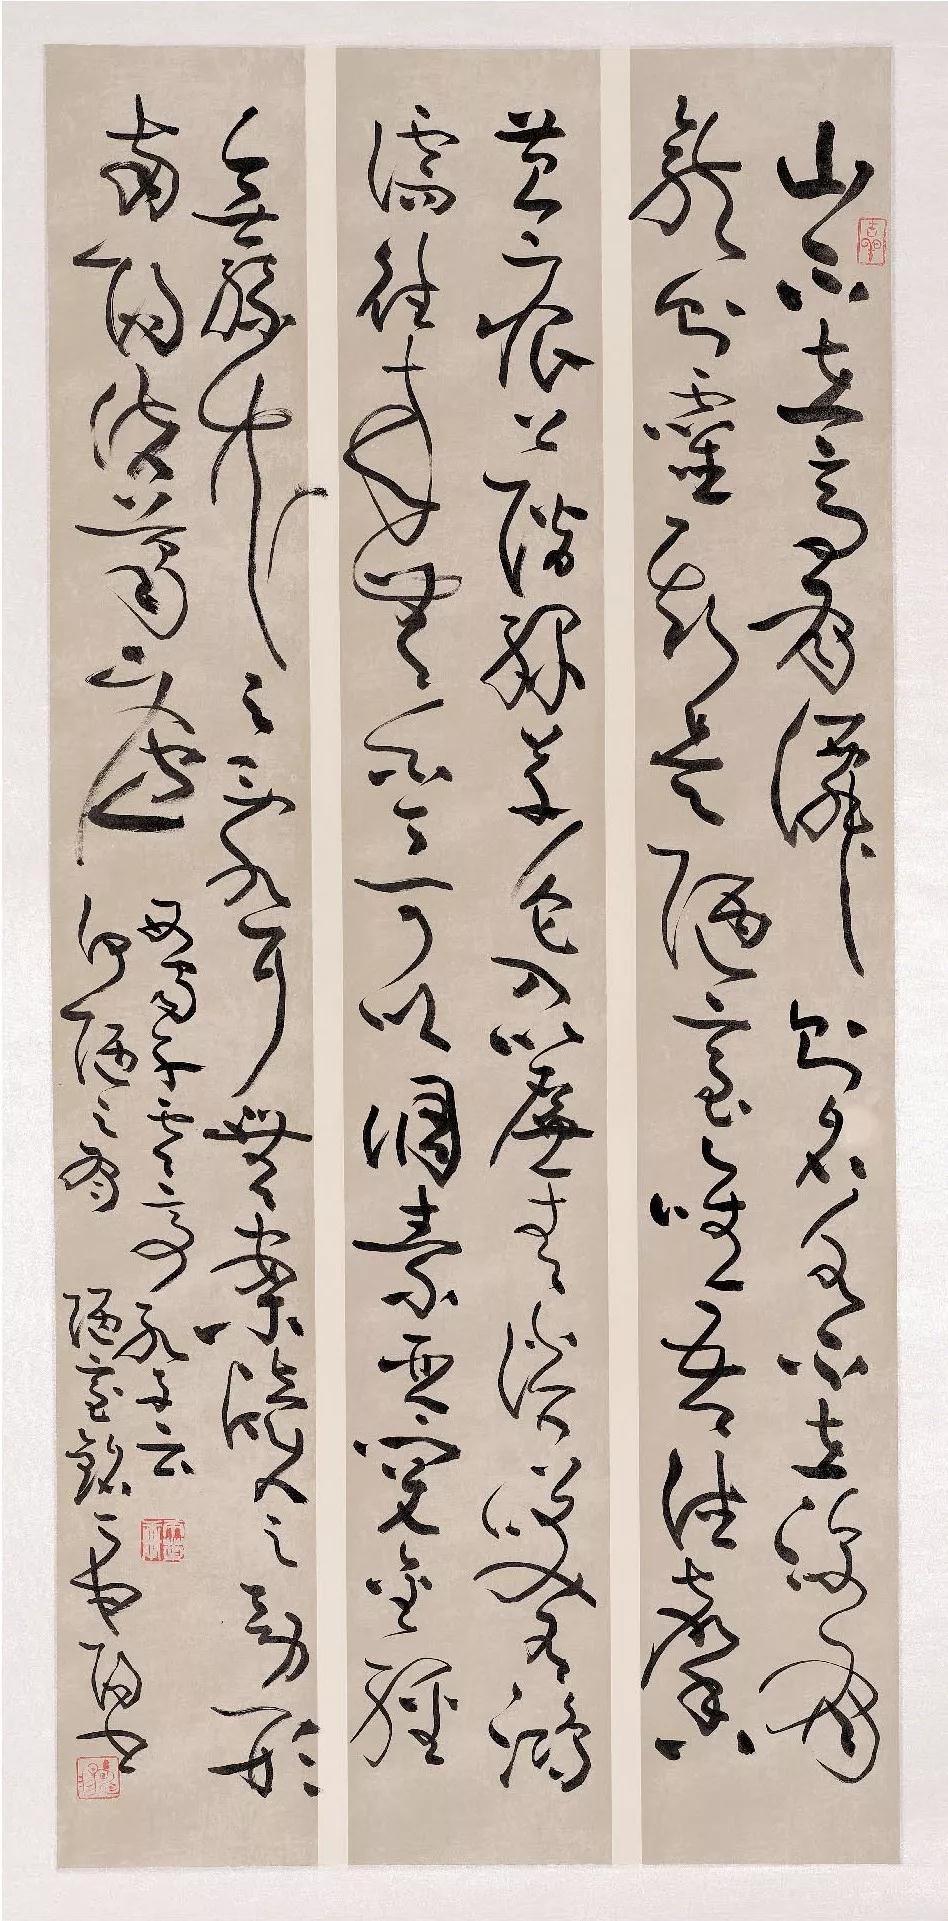 山不在高有僊則名水不在深有
龍則靈斯是陋室唯吾德馨
苔痕上階綠草色入簾青談笑有鴻
儒往來無白丁可以調素琴閱金經
無絲竹之亂耳無案牘之勞形
南陽諸葛廬
西蜀子雲亭孔子云
何陋之有 陋室銘